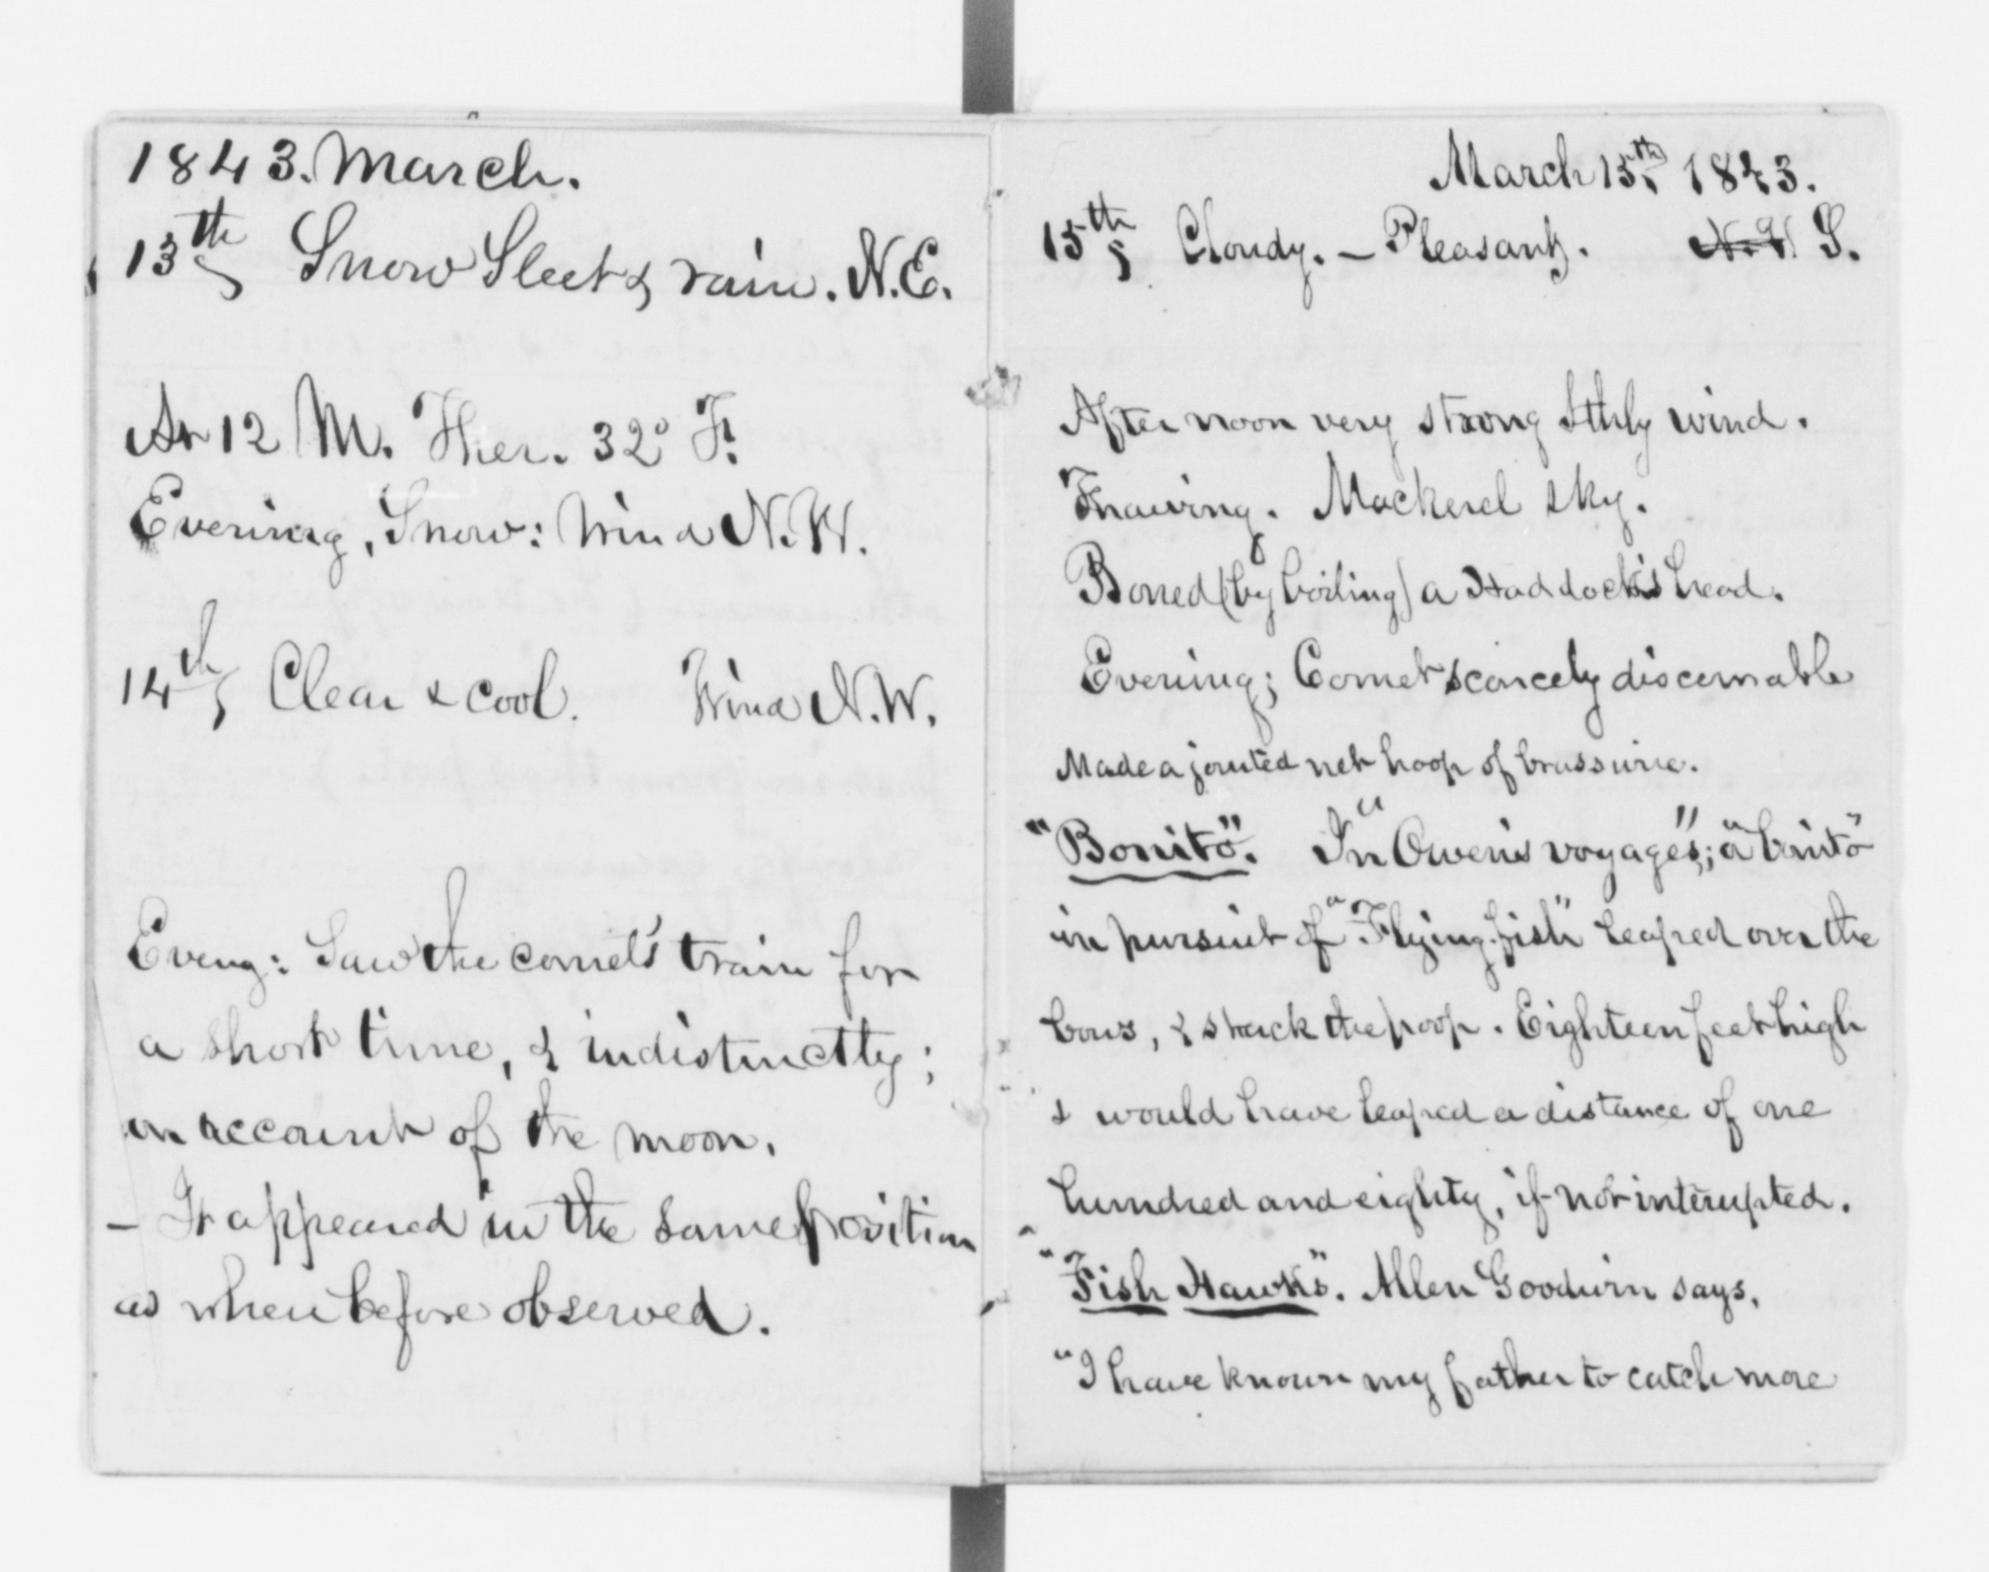 1843. March.
13th, Snow Sleet & rain. N.E.
At 12 M. Ther. 32° F.
Evening, Snow: Wind N.W.
14th, Clear & cool. Wind N.W.
Eveng: Saw the comet's train for
a short time, & indistinctly;
on account of the moon.
– It appeared in the same position
as when before observed.
March 15th, 1843.
15th, Cloudy. – Pleasant. N.W. S.
Afternoon very strong Sthly wind.
Thawing. Mackerel sky.
Boned (by boiling) a Haddock's head.
Evening; Comet scarcely discernable
Made a jointed net hoop of brass wire.
"Bonito". In "Owen's voyages"; a "bonito"
in pursuit of "Flying-fish" leaped over the
bows, & struck the poop. Eighteen feet high
& would have leaped a distance of one
hundred and eighty, if not interupted.
"Fish Hawks". Allen Goodwin says,
"I have known my father to catch more